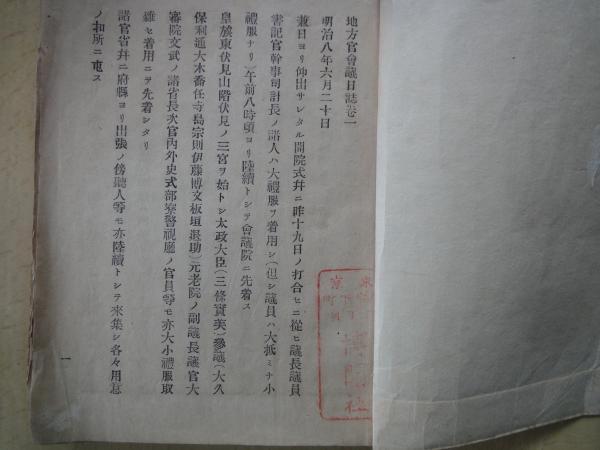 地方官會議日誌卷一
明治八年六月二十日
兼日ヨリ仰出サレタル開院式幷ニ昨十九日ノ打合セニ從ヒ議長議員
書記官幹事司計長ノ諸人ハ大禮服ヲ着用シ(但シ議員ハ大抵ミナ小
禮服ナリ)午前八時頃ヨリ陸續トシテ會議院ニ先着ス
皇族東伏見山階伏見ノ三宮ヲ始トシ太政大臣(三條實美)參議(大久
保利通大木喬任寺島宗則伊藤博文板垣退助)元老院ノ副議長議官大
審院文武ノ諸省長次官內外史式部寮警視廳ノ官員等モ亦大小禮服取
雑セ着用ニテ先着シタリ
諸官省幷ニ府縣ヨリ出張ノ傍聽人等モ亦陸續トシテ來集シ各々用意
ノ扣所ニ屯ス
一